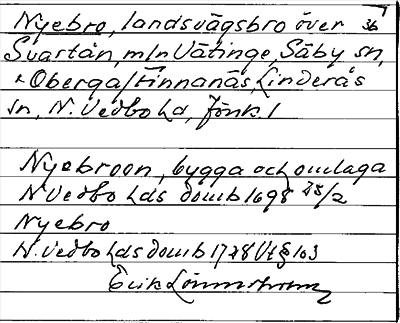 Nyebro, landsvägsbro över 3b
Svartån, mln Vätinge, Säby sn,
o Oberga/Finnanäs, Linderås
sn, N. Vedbo hd, Jönk. l
Nyebroon, bygga och omlaga
N Vedbo hds domb 1698 25/2
Nyebro
N. Vedbo hds domb 1728 Vt § 103
Erik Lönnström